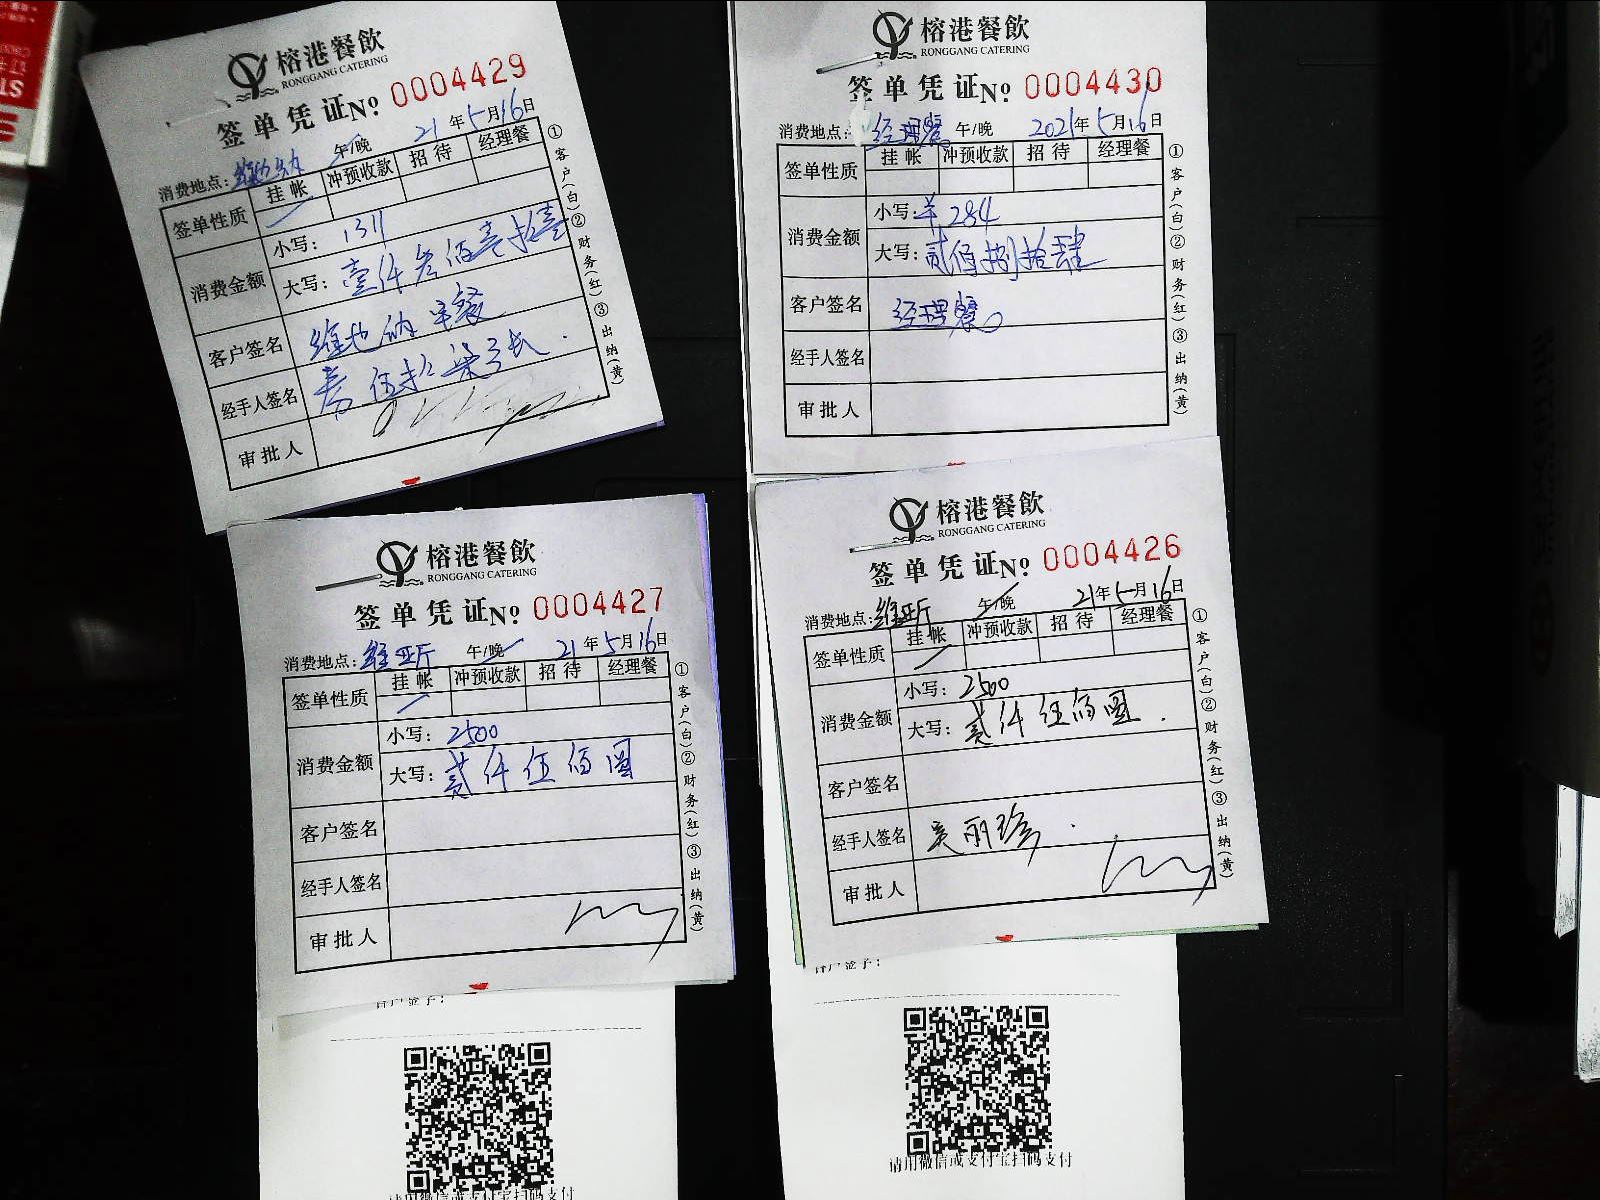 榕港餐飲
RONGGANG CATERING
签单凭证№ 0004429
消费地点: 午/晚 21年5月16日
签单性质 挂帐 冲预收款 招待 经理餐
消费金额 小写: 1311
大写: 壹仟叁佰壹拾壹
客户签名 维也纳 早餐
经手人签名
审批人
①客户(白)②财务(红)③出纳(黄)
榕港餐飲
RONGGANG CATERING
签单凭证№ 0004430
消费地点: 经理餐 午/晚 2021年5月16日
签单性质 挂帐 冲预收款 招待 经理餐
消费金额 小写: 羊 284
大写: 贰佰捌拾肆
客户签名 经理餐
经手人签名
审批人
①客户(白)②财务(红)③出纳(黄)
榕港餐飲
RONGGANG CATERING
签单凭证№ 0004427
消费地点: 午/晚 21年5月16日
签单性质 挂帐 冲预收款 招待 经理餐
消费金额 小写: 2500
大写: 贰仟伍佰圆
客户签名
经手人签名
审批人
①客户(白)②财务(红)③出纳(黄)
榕港餐飲
RONGGANG CATERING
签单凭证№ 0004426
消费地点: 午/晚 21年5月16日
签单性质 挂帐 冲预收款 招待 经理餐
消费金额 小写: 2500
大写: 贰仟伍佰圆.
客户签名
经手人签名 吴丽珍.
审批人
①客户(白)②财务(红)③出纳(黄)
请用微信或支付宝扫码支付
请用微信或支付宝扫码支付